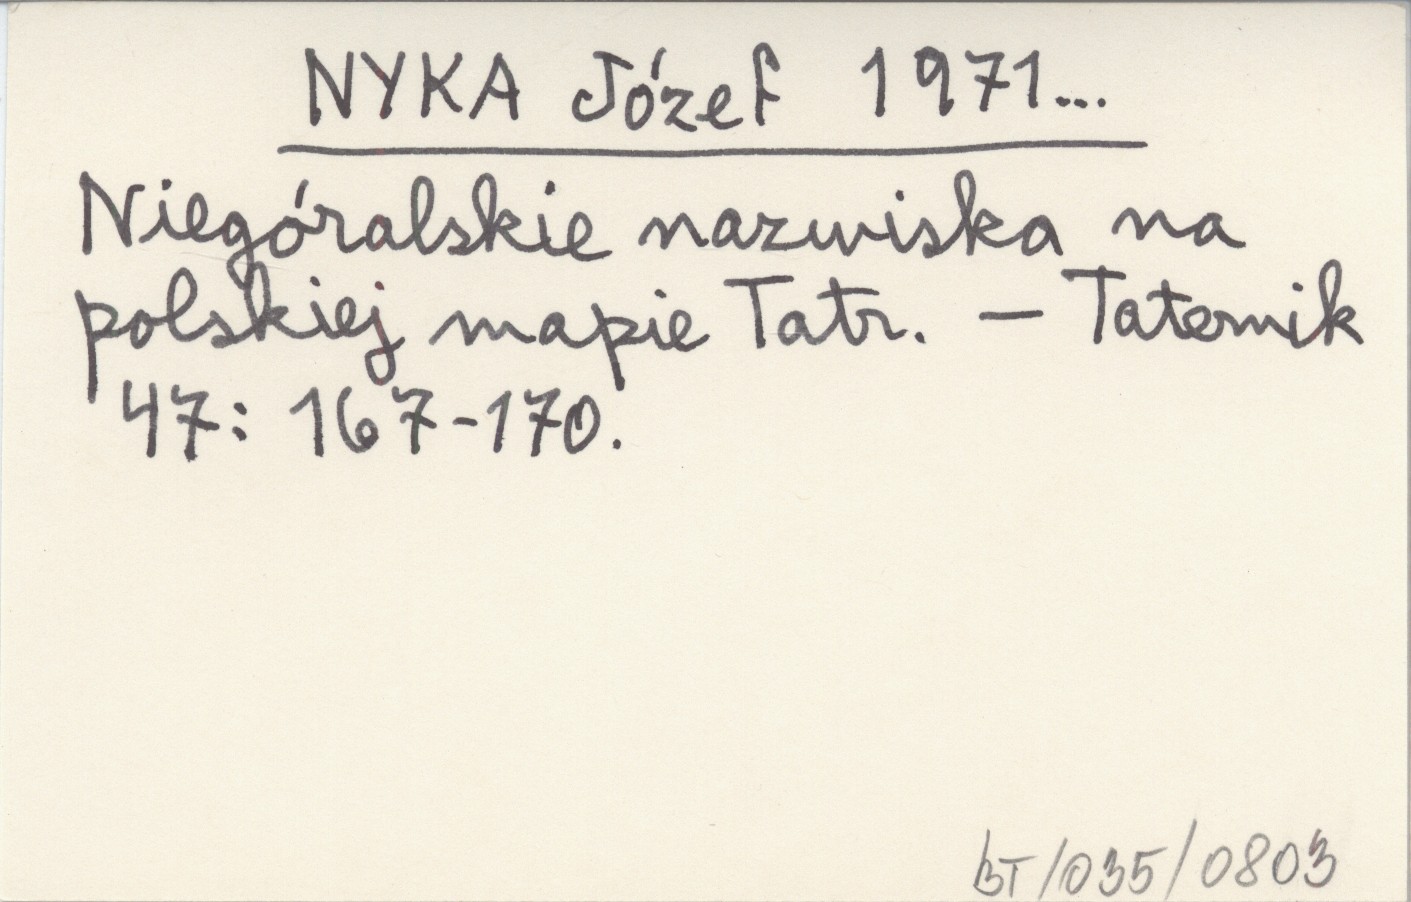 NYKA Józef 1971...
Niegóralskie nazwiska na
polskiej mapie Tatr. — Taternik
47: 167-170.
BT/035/0803